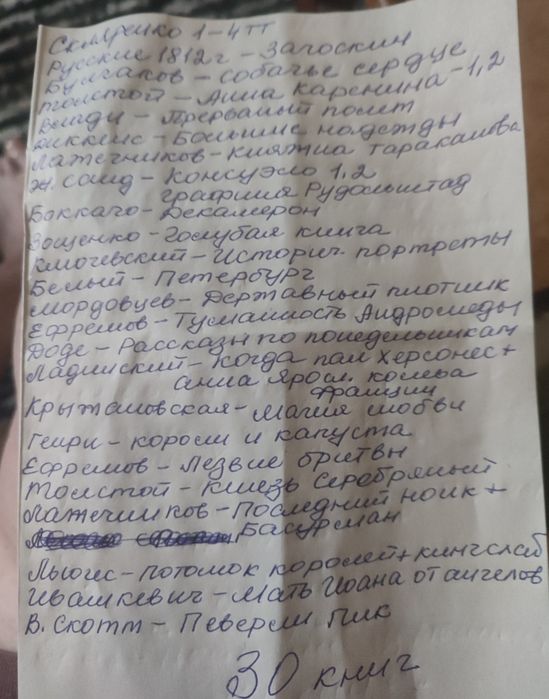 Скляренко 1-4тт
Русские 1812г - Загоскин
Булгаков - Собачье сердце
Толстой - Анна Каренина - 1,2
Влади - Прерваный полет
Диккенс - Большие надежды
Лажечников - Княжна Тараканова
Ж. Санд - Консуэло 1,2
Графиня Рудольштад
Боккачо - Декамерон
Зощенко - Голубая книга
Ключевский - Историч. портреты
Белый - Петербург
Мордовцев - Державный плотник
Ефремов - Туманность Андромеды
Доде - Рассказы по понедельникам
Ладинский - Когда пал Херсонес +
Анна Яросл. колева
Франции
Крыжановская - Магия любви
Генри - короли и капуста
Ефремов - Лезвие бритвы
Толстой - Князь Серебряный
Лажечников - Последний Новик +
Басурман
Льюис - Потомок королей + Кингслеб
Ивашкевич - Мать Иоана от ангелов
В. Скотт - Певерил Пик
30 книг